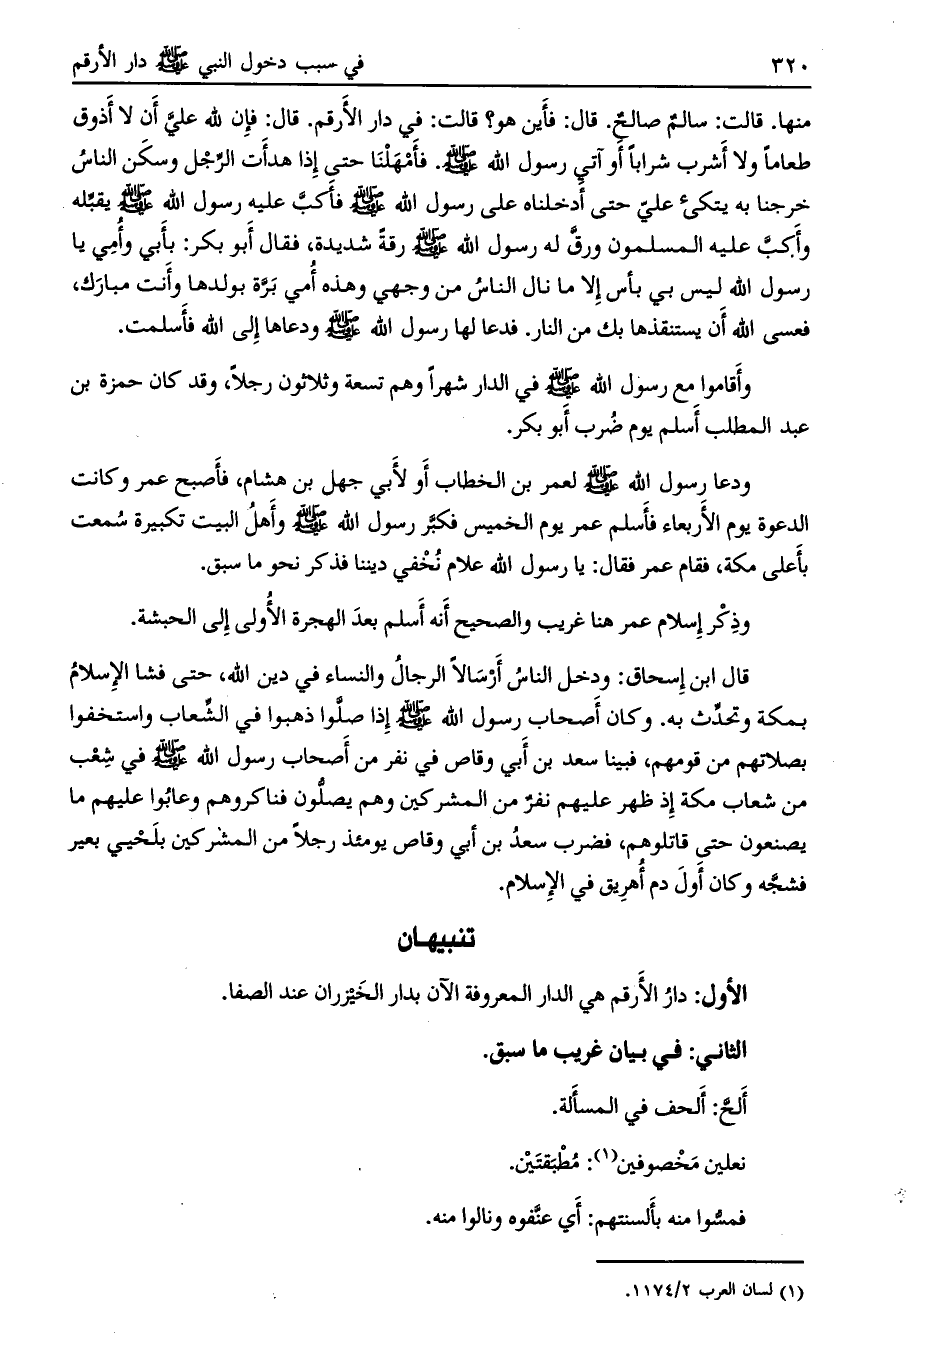 ٣٢٠
في سبب دخول النبي ﷺ دار الأرقم
منها. قالت: سالمٌ صالحٌ. قال: فأَين هو؟ قالت: في دار الأَرقم. قال: فإِن لله عليَّ أَن لا أَذوق
طعاماً ولا أَشرب شراباً أَو آتي رسول الله ﷺ. فأَمْهَلْنَا حتى إِذا هدأَت الرِّجْل وسكَن الناسُ
خرجنا به يتكىُٔ عليّ حتى أَدخلناه على رسول الله ﷺ فأَكبَّ عليه رسول الله ﷺ يقبِّله
وأَكبَّ عليه المسلمون ورقَّ له رسول الله ﷺ رقةً شديدة، فقال أَبو بكر: بأَبي وأُمِي يا
رسول الله ليس بي بأس إِلا ما نال الناسُ من وجهي وهذه أُمي بَرَّة بولدها وأَنت مبارَك،
فعسى الله أَن يستنقذها بك من النار. فدعا لها رسول الله ﷺ ودعاها إِلى الله فأَسلمت.
وأَقاموا مع رسول الله ﷺ في الدار شهراً وهم تسعة وثلاثون رجلاً، وقد كان حمزة بن
عبد المطلب أَسلم يوم ضُرب أَبو بكر.
ودعا رسول الله ﷺ لعمر بن الخطاب أَو لأَبي جهل بن هشام، فأَصبح عمر وكانت
الدعوة يوم الأَربعاء فأَسلم عمر يوم الخميس فكبَّر رسول الله ﷺ وأَهلُ البيت تكبيرة سُمعت
بأَعلى مكة، فقام عمر فقال: يا رسول الله علام نُخْفي ديننا فذكر نحو ما سبق.
وذِكْر إِسلام عمر هنا غريب والصحيح أَنه أَسلم بعدَ الهجرة الأُولى إِلى الحبشة.
قال ابن إِسحاق: ودخل الناسُ أَرْسَالاً الرجالُ والنساء في دين الله، حتى فشا الإِسلامُ
بمكة وتحدِّث به. وكان أَصحاب رسول الله ﷺ إِذا صلَّوا ذهبوا في الشِّعاب واستخفوا
بصلاتهم من قومهم، فبينا سعد بن أَبي وقاص في نفر من أَصحاب رسول الله ﷺ في شِعْب
من شعاب مكة إِذ ظهر عليهم نفرٌ من المشركين وهم يصلُّون فناكروهم وعابُوا عليهم ما
يصنعون حتى قاتلوهم، فضرب سعدُ بن أَبي وقاص يومئذ رجلاً من المشركين بلَحْيي بعير
فشجَّه وكان أَولَ دم أُهرِيق في الإِسلام.
تنبيهان
الأول: دارُ الأَرقم هي الدار المعروفة الآن بدار الخَيْزران عند الصفا.
الثاني: في بيان غريب ما سبق.
أَلحَّ: أَلحف في المسأَلة.
نعلين مَخْصوفين(١): مُطْبَقتَيْن.
فمسُّوا منه بأَلسنتهم: أَي عنَّفوه ونالوا منه.
(١) لسان العرب ١١٧٤/٢.